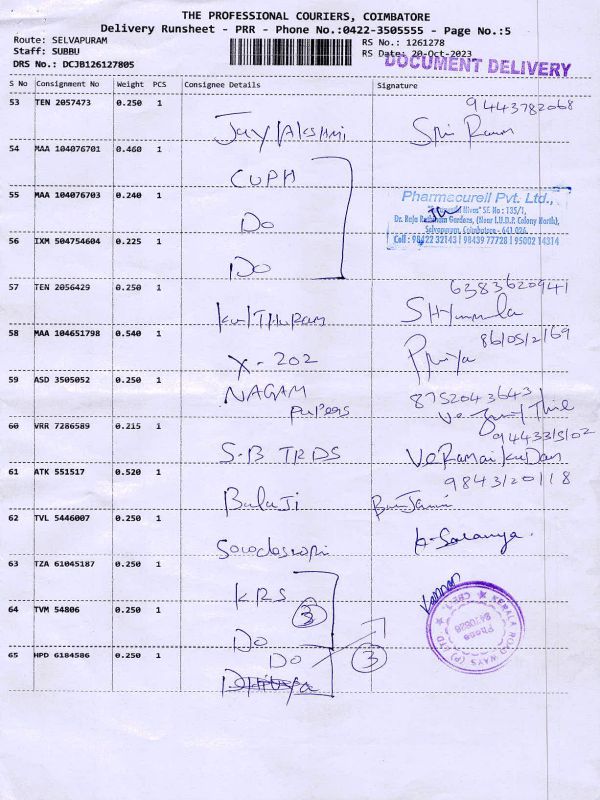 THE PROFESSIONAL COURIERS, COIMBATORE
Delivery Runsheet - PRR - Phone No.:0422-3505555 - Page No.:5
Route: SELVAPURAM
RS No.: 1261278
Staff: SUBBU
RS Date: 20-Oct-2023
DOCUMENT DELIVERY
DRS No.: DCJB126127805
S No Consignment No Weight PCS Consignee Details Signature
53 TEN 2057473 0.250 1
9443782068
Jay lakshmi
54 MAA 104076701 0.460 1
CUPH
55 MAA 104076703 0.240 1
Do
Pharmacureil Pvt. Ltd.,
SF No : 135/1,
Gardens, (Near I.U.D.P. Colony North),
Selvapuram, Coimbatore - 641 026.
Cell : 98422 32143 | 98439 77728 | 95002 14314
56 IXM 504754604 0.225 1
Do
57 TEN 2056429 0.250 1
6383620941
58 MAA 104651798 0.540 1
X-202
Priya
59 ASD 3505052 0.250 1
NAGAM
Papers
8752043643
60 VRR 7286589 0.215 1
S.B TRDS
61 ATK 551517 0.520 1
9843120118
BalaJi
62 TVL 5446007 0.250 1
K-Saranya.
63 TZA 61045187 0.250 1
KRS
3
Kannan
64 TVM 54806 0.250 1
Do
KERALA ROAD WAYS (P) LTD
Phone
65 HPD 6184586 0.250 1
Do
3